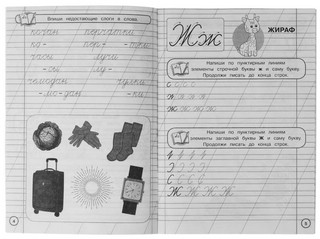 Впиши недостающие слоги в слова.
кочан перчатки
ко- пер- -тки
часы лучи
-сы лу-
чемодан чулки
-мо-дан -ки
4
Жж
ЖИРАФ
Напиши по пунктирным линиям
элементы строчной буквы ж и саму букву.
Продолжи писать до конца строк.
Ж Ж Ж Ж
Напиши по пунктирным линиям
элементы заглавной буквы Ж и саму букву.
Продолжи писать до конца строк.
Ж Ж Ж Ж